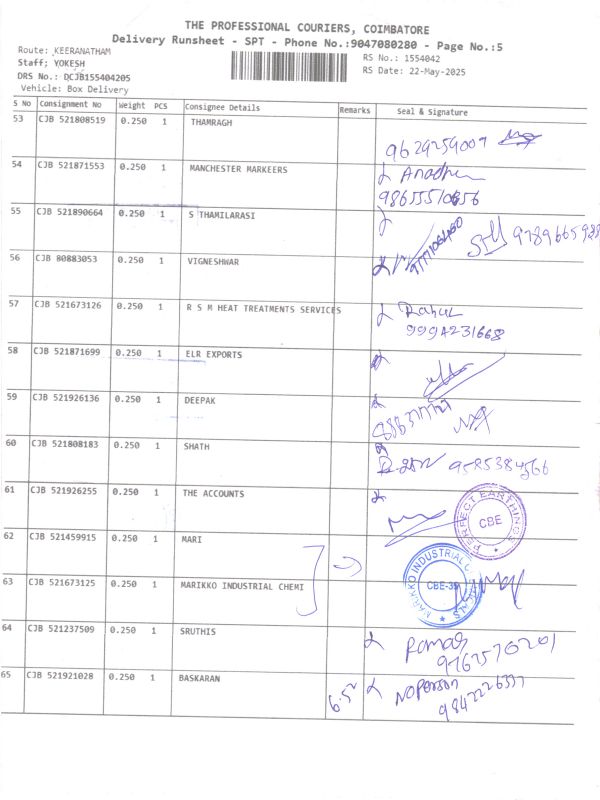 THE PROFESSIONAL COURIERS, COIMBATORE
Delivery Runsheet - SPT - Phone No.:9047080280 - Page No.:5
Route: KEERANATHAM
RS No.: 1554042
Staff; YOKESH
RS Date: 22-May-2025
DRS No.: DCJB155404205
Vehicle: Box Delivery
S No Consignment No Weight PCS Consignee Details Remarks Seal & Signature
53 CJB 521808519 0.250 1 THAMRAGH
9629259009
54 CJB 521871553 0.250 1 MANCHESTER MARKEERS
55 CJB 521890664 0.250 1 S THAMILARASI
56 CJB 80883053 0.250 1 VIGNESHWAR
57 CJB 521673126 0.250 1 R S M HEAT TREATMENTS SERVICES Rahul
9994231668
58 CJB 521871699 0.250 1 ELR EXPORTS
59 CJB 521926136 0.250 1 DEEPAK
60 CJB 521808183 0.250 1 SHATH
61 CJB 521926255 0.250 1 THE ACCOUNTS
PERFECT EARTHINGS CBE
62 CJB 521459915 0.250 1 MARI
63 CJB 521673125 0.250 1 MARIKKO INDUSTRIAL CHEMI
MARIKKO INDUSTRIAL CHEMICALS
64 CJB 521237509 0.250 1 SRUTHIS
65 CJB 521921028 0.250 1 BASKARAN